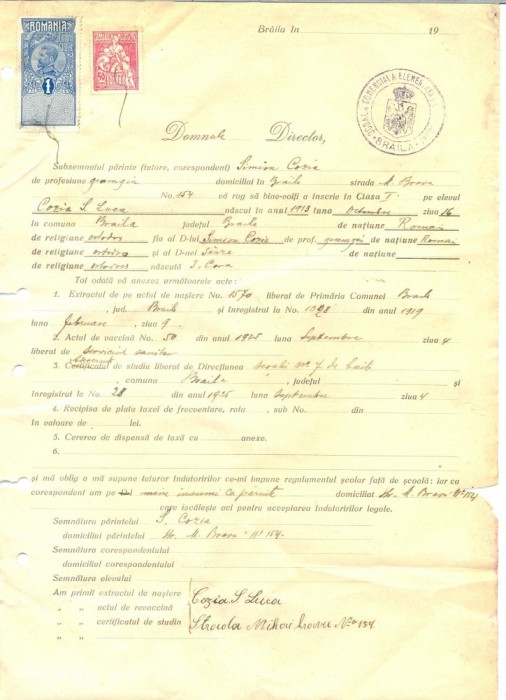 ROMANIA
1
Brăila în 19
ȘCOALA COMERCIALĂ ELEMENTARĂ
BRĂILA
Domnule Director,
Subsemnatul părinte (tutore, corespondent) Simion Cozia
de profesiune domiciliat în Brăila strada M. Bravu
No. 154 vă rog să bine-voiți a înscrie în Clasa I pe elevul
Cozia S. Luca născut în anul 1913 luna Octombre ziua 16
în comuna Braila județul Braila de națiune Roman
de religiune ortodox fiu al D-lui Simion Cozia de prof. de națiune Roman
de religiune ortodox și al D-nei de națiune
de religiune ortodox născută
Tot odată vă anexez următoarele acte:
1. Extractul de pe actul de naștere No. 1570 liberat de Primăria Comunei Braila
, jud. Braila și înregistrat la No. 1098 din anul 1919
luna Februar , ziua 9
2. Actul de vaccină No. 50 din anul 1925 luna Septembre ziua 4
liberat de serviciul sanitar
3. Certificatul de studiu liberat de Direcțiunea școalii No. 7 de baieti
, comuna Braila , județul și
înregistrat la No. 28 din anul 1925 luna Septembre ziua 4
4. Recipisa de plata taxei de frecventare, rata , sub No. din
în valoare de lei.
5. Cererea de dispensă de taxă cu anexe.
6.
și mă oblig a mă supune tuturor îndatoririlor ce-mi impune regulamentul școlar față de școală: iar ca
corespondent am pe mine insumi ca parinte domiciliat Str. M. Bravu No 154
care iscălește aci pentru acceptarea îndatoririlor legale.
Semnătura părintelui S. Cozia
domiciliul părintelui Str. M. Bravu No 154.
Semnătura corespondentului
domiciliul corespondentului
Semnătura elevului
Am primit extractul de naștere
„ „ actul de revaccină Cozia S. Luca
„ „ certificatul de studiu Strada Mihai Bravu No 154
„ „